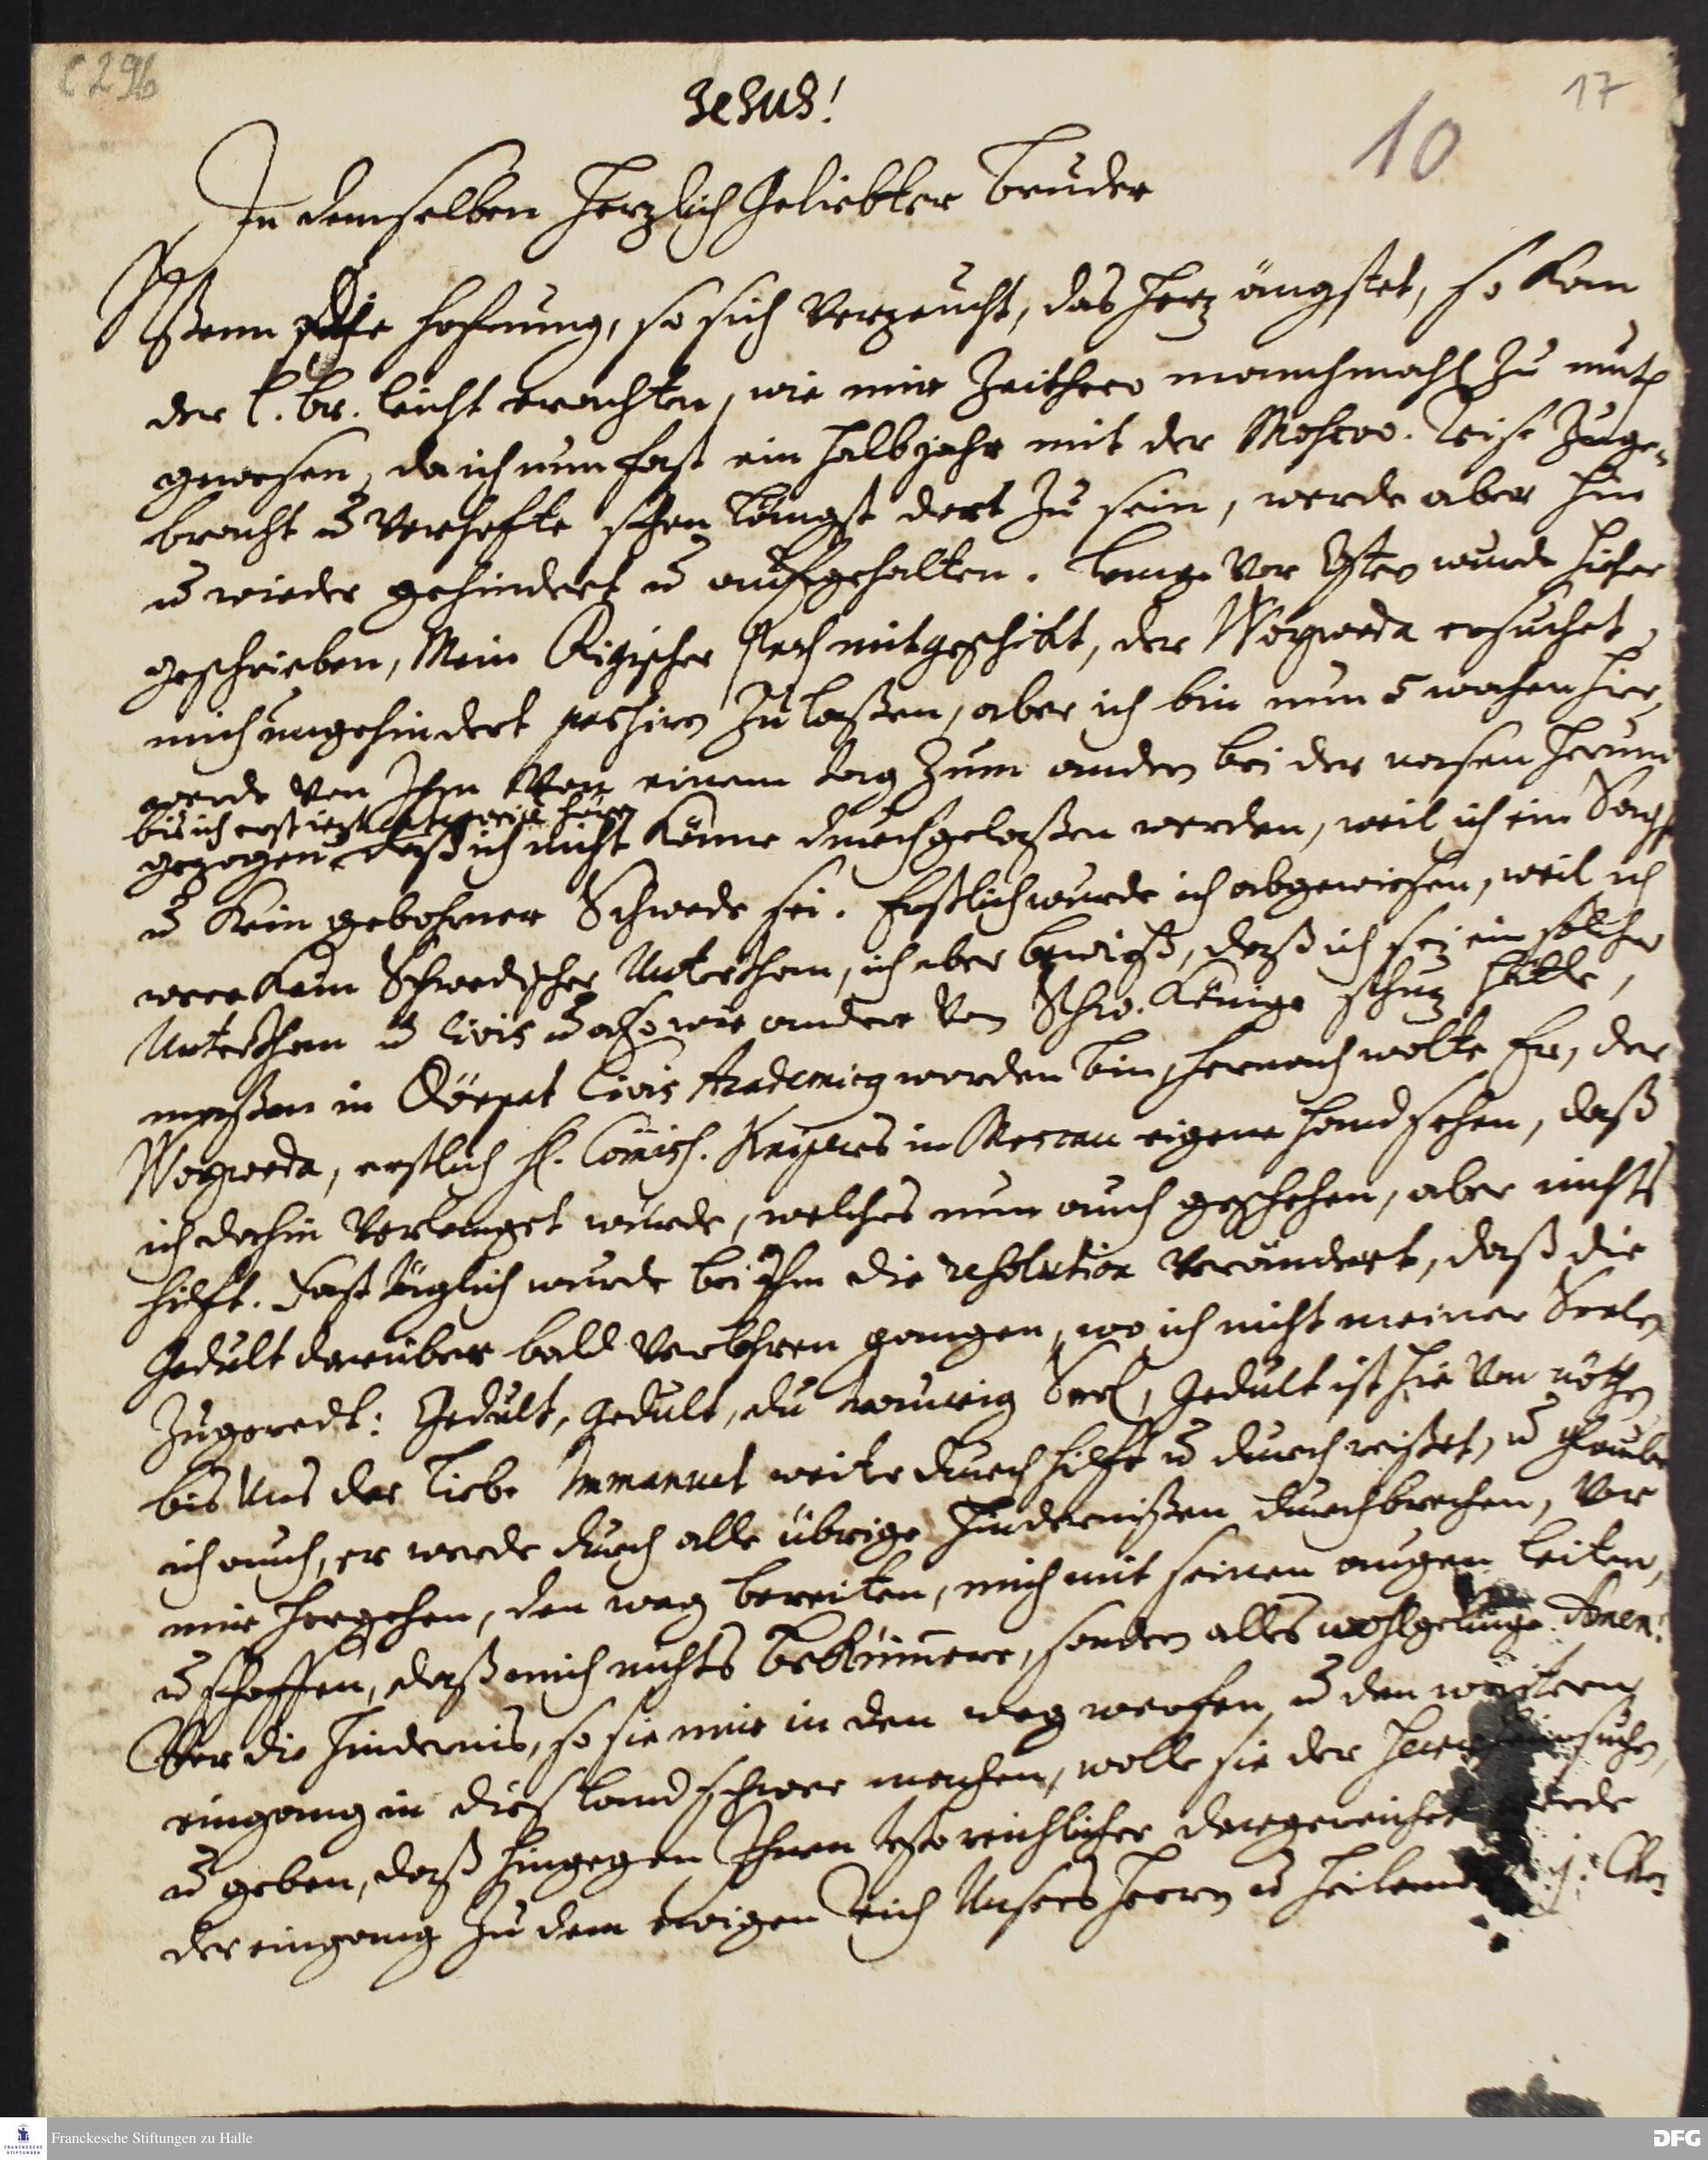 C 296
17
10
Jesus!
In demselben Herzlich Geliebter Bruder
Wenn die Hofnung, so sich verzeucht, das Herz ängstet, so kan
der l. br. leicht erachten, wie mir Zeithero manchmahl zu muth
gewesen, da ich nun fast ein halb jahr mit der Moscow. Reise zuge-
bracht u verhofte schon längst dort zu sein, werde aber hin
u wieder gehindert u aufgehalten. Lange vor Ostern wurde hieher
geschrieben, Mein Rigischer Paß mitgeschikt, der Woywoda ersuchet
mich ungehindert passiren zu laßen, aber ich bin nun 5 wochen hier,
werde von Ihm von einem tag zum andern bei der nasen herum
bis ich erst iezt hören
gezogen daß ich nicht könne durchgelaßen werden, weil ich ein Sachse
u kein gebohrner Schwede sei. Erstlich wurde ich abgewiesen, weil ich
were kein Schwedischer Unterthan, ich aber bewieß, daß ich sei ein solcher
Unterthan u civis u also wie andere von Schw. Könige schuz hätte,
maßen in Dörpat Civis Academicg worden bin, hernach wolte Er, der
Woywoda, erstlich H. Com̄iss. Knipers in Moscau eigene Hand sehen, daß
ich dahin verlanget würde, welches nun auch geschehen, aber nichts
hilft. Fast täglich wurde bei Ihm die resolution verändert, daß die
Gedult darüber bald verlohren gangen, wo ich nicht meiner Seelen
Zugeredt: Gedult, Gedult, du traurig Seel, Gedult ist hie von nöthen
bis Uns der Liebe Immanuel weiter durchhilft u durchreißet, u glaube
ich auch, er werde durch alle übrige Hindernißen durchbrechen, vor
mir hergehen, den weg bereiten, mich mit seinen augen leiten,
u schaffen, daß mich nichts beküm̄ere, sondern alles wohlgelinge. Amen!
Vor die Hindernis, so sie mir in den weg werfen, u den weitern
eingang in dies Land schwer machen, wolle sie der Herr heimsuchen,
u geben, daß hingegen Ihnen desto reichlicher dargereichet werde
der eingang zu dem ewigen Reich Unsers Herrn u Heilandes J. Chr.
Franckesche Stiftungen zu Halle
DFG